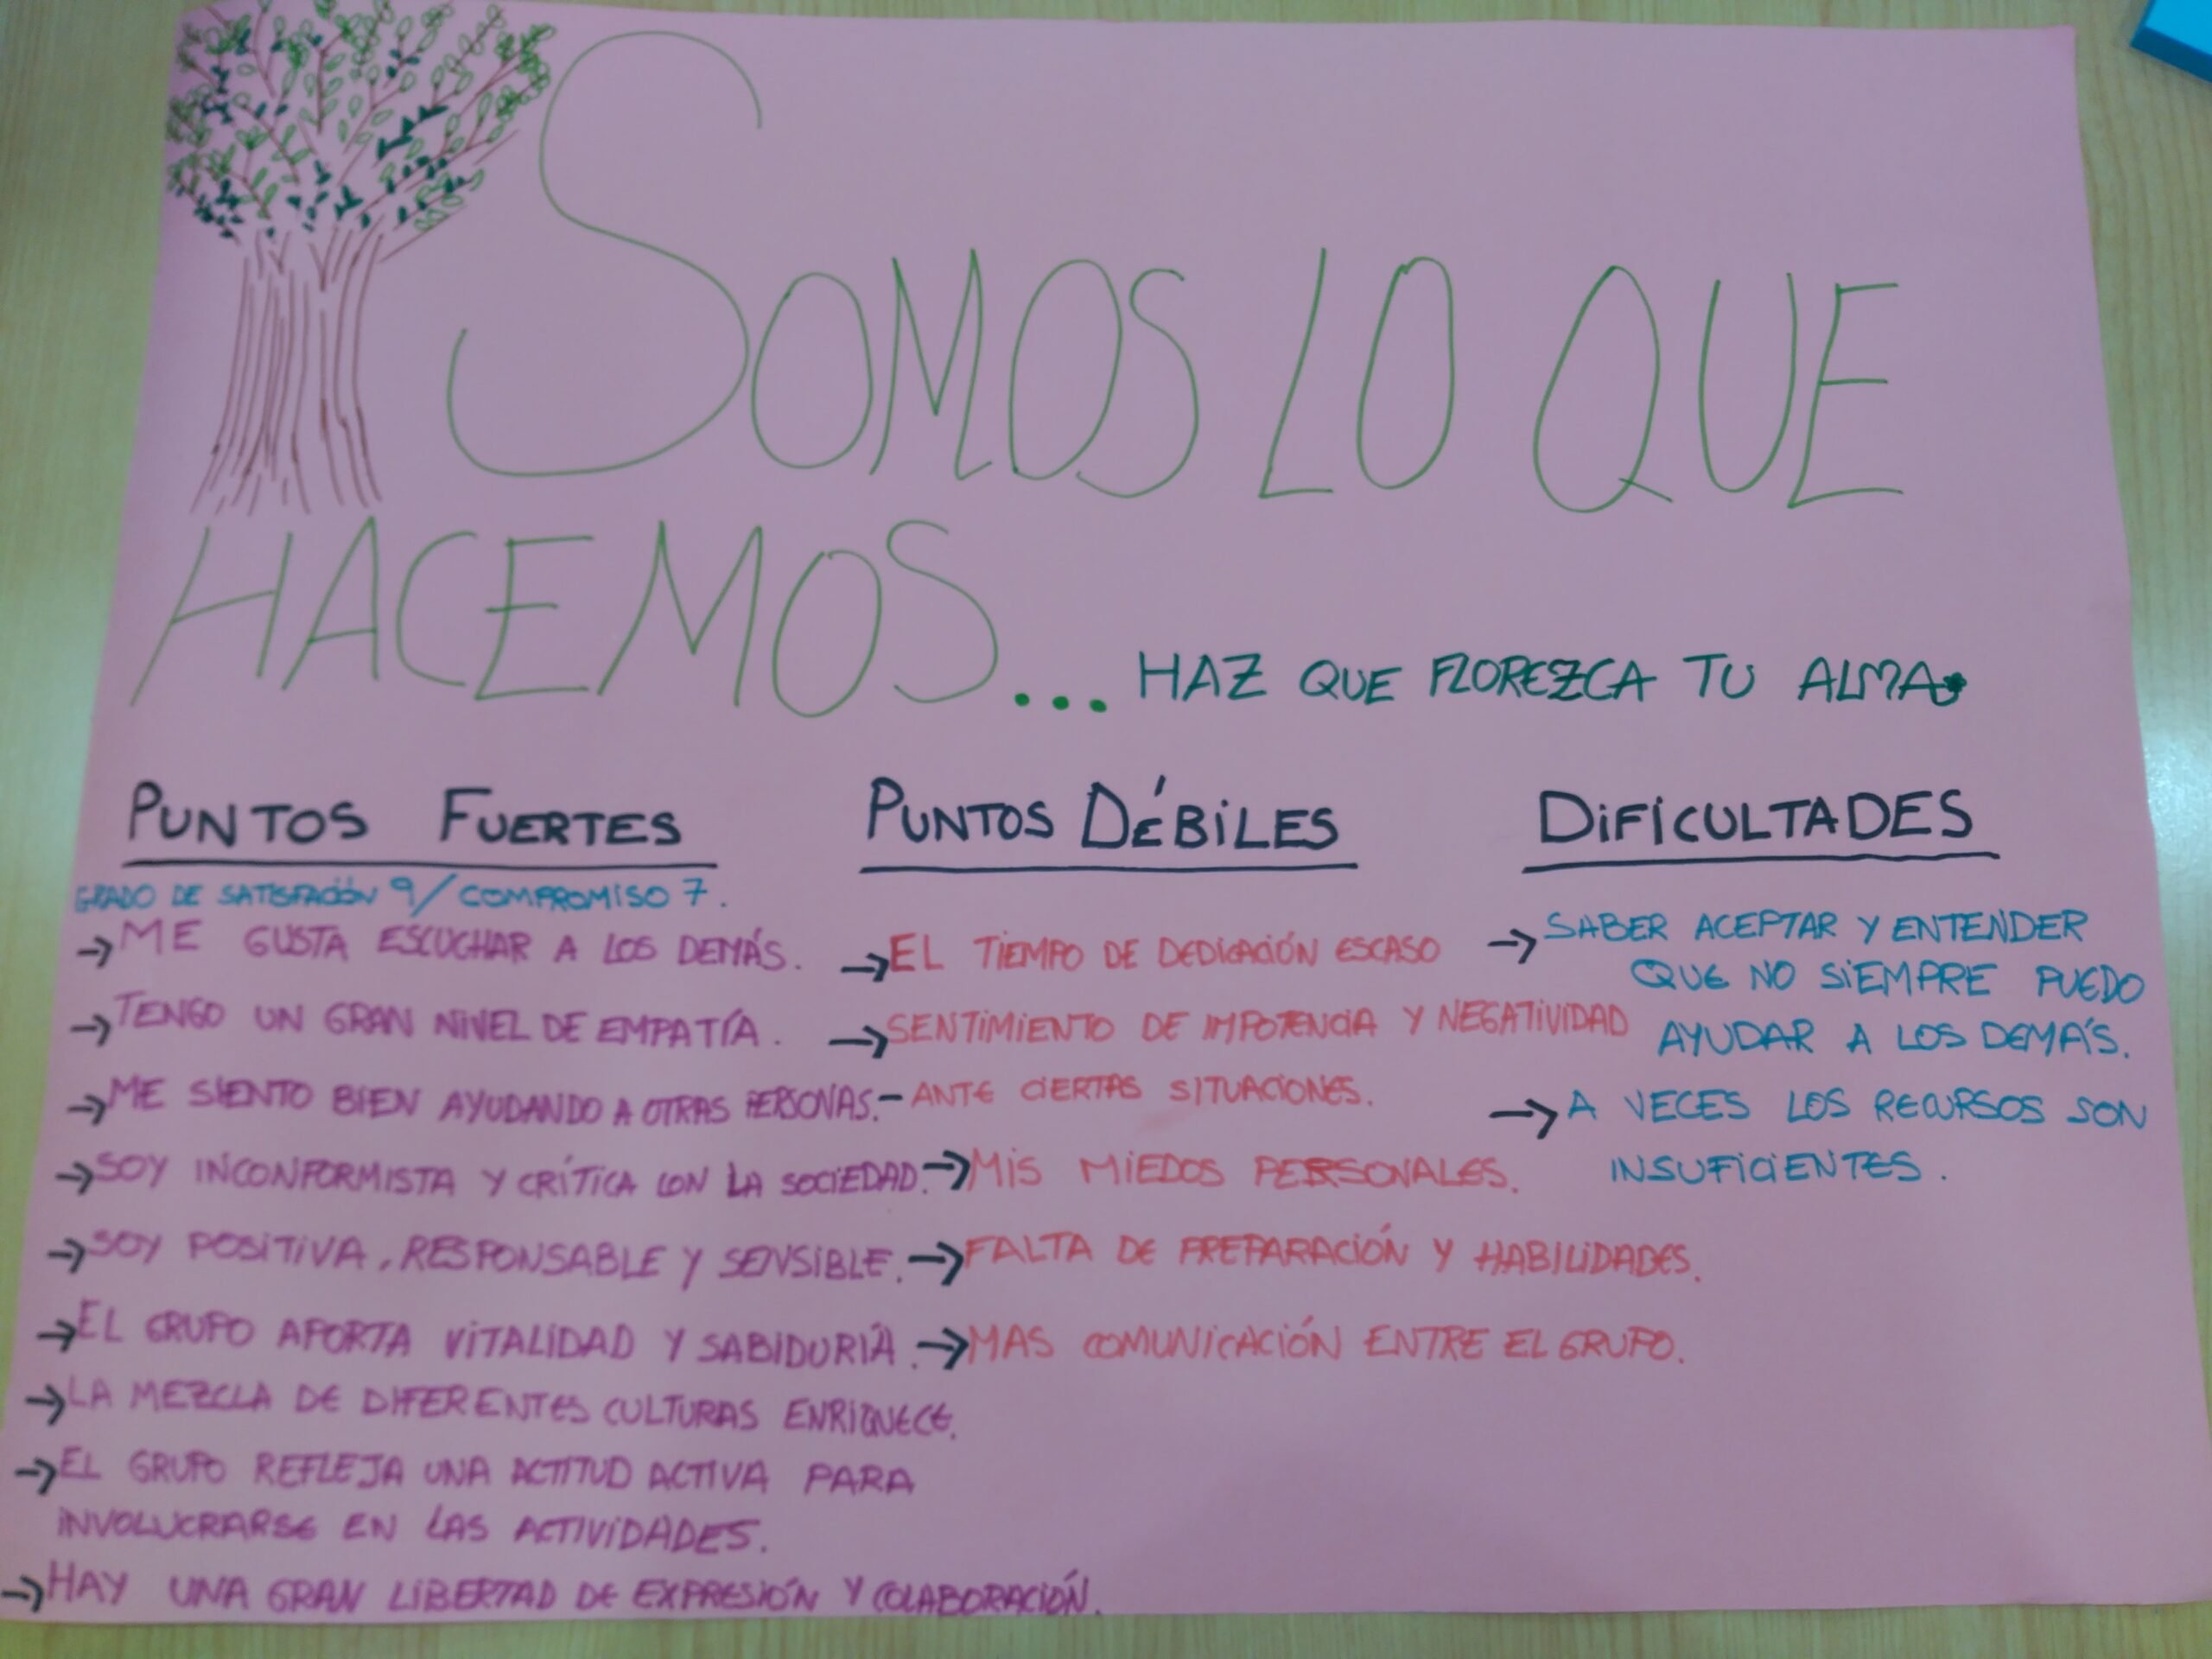 SOMOS LO QUE
HACEMOS... HAZ QUE FLOREZCA TU ALMA.
PUNTOS FUERTES
GRADO DE SATISFACCIÓN 9/COMPROMISO 7.
→ ME GUSTA ESCUCHAR A LOS DEMÁS.
→ TENGO UN GRAN NIVEL DE EMPATÍA.
→ ME SIENTO BIEN AYUDANDO A OTRAS PERSONAS.
→ SOY INCONFORMISTA Y CRÍTICA CON LA SOCIEDAD.
→ SOY POSITIVA, RESPONSABLE Y SENSIBLE.
→ EL GRUPO APORTA VITALIDAD Y SABIDURÍA.
→ LA MEZCLA DE DIFERENTES CULTURAS ENRIQUECE.
→ EL GRUPO REFLEJA UNA ACTITUD ACTIVA PARA
INVOLUCRARSE EN LAS ACTIVIDADES.
→ HAY UNA GRAN LIBERTAD DE EXPRESIÓN Y COLABORACIÓN.
PUNTOS DÉBILES
→ EL TIEMPO DE DEDICACIÓN ESCASO
→ SENTIMIENTO DE IMPOTENCIA Y NEGATIVIDAD
- ANTE CIERTAS SITUACIONES.
→ MIS MIEDOS PERSONALES.
→ FALTA DE PREPARACIÓN Y HABILIDADES.
→ MAS COMUNICACIÓN ENTRE EL GRUPO.
DIFICULTADES
→ SABER ACEPTAR Y ENTENDER
QUE NO SIEMPRE PUEDO
AYUDAR A LOS DEMÁS.
→ A VECES LOS RECURSOS SON
INSUFICIENTES.